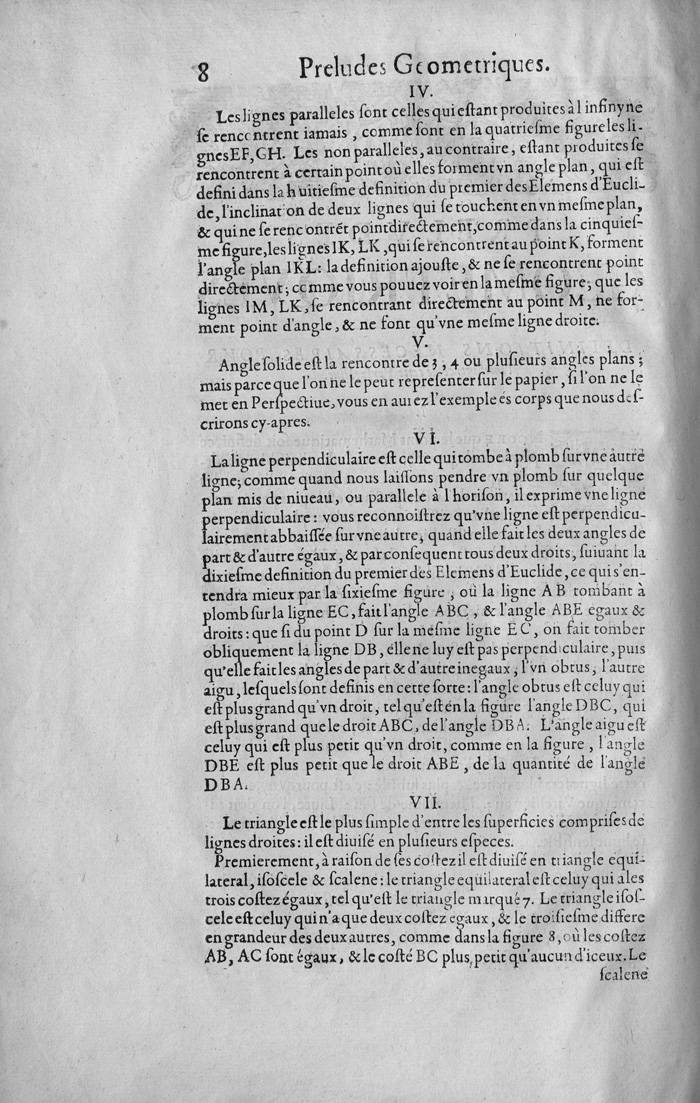 8 Preludes Geometriques.
IV.
Les lignes paralleles ſont celles qui eſtant produites à l infiny ne
ſe rencontrent iamais , comme ſont en la quatrieſme figure les li-
gnes EF, GH. Les non paralleles, au contraire, eſtant produites ſe
rencontrent à certain point où elles forment vn angle plan, qui eſt
defini dans la huitieſme definition du premier des Elemens d'Eucli-
de, l'inclination de deux lignes qui ſe touchent en vn meſme plan,
& qui ne ſe rencontrēt point directement, comme dans la cinquieſ-
me figure, les lignes IK, LK , qui ſe rencontrent au point K, forment
l'angle plan IKL: la definition ajouſte, & ne ſe rencontrent point
directement; comme vous pouuez voir en la meſme figure; que les
lignes IM, LK, ſe rencontrant directement au point M, ne for-
ment point d'angle, & ne font qu'vne meſme ligne droite.
V.
Angle ſolide eſt la rencontre de 3 , 4 ou pluſieurs angles plans ;
mais parce que l'on ne le peut repreſenter ſur le papier, ſi l'on ne le
met en Perſpectiue, vous en aurez l'exemple és corps que nous deſ-
crirons cy-apres.
VI.
La ligne perpendiculaire eſt celle qui tombe à plomb ſur vne autre
ligne; comme quand nous laiſſons pendre vn plomb ſur quelque
plan mis de niueau, ou parallele à l horiſon, il exprime vne ligne
perpendiculaire : vous reconnoiſtrez qu'vne ligne eſt perpendicu-
lairement abbaiſſée ſur vne autre, quand elle fait les deux angles de
part & d'autre égaux, & par conſequent tous deux droits, ſuiuant la
dixieſme definition du premier des Elemens d'Euclide, ce qui s'en-
tendra mieux par la ſixieſme figure , où la ligne AB tombant à
plomb ſur la ligne EC, fait l'angle ABC , & l'angle ABE egaux &
droits : que ſi du point D ſur la meſme ligne EC, on fait tomber
obliquement la ligne DB, elle ne luy eſt pas perpendiculaire, puis
qu'elle fait les angles de part & d'autre inegaux, l'vn obtus, l'autre
aigu, leſquels ſont definis en cette ſorte : l'angle obtus eſt celuy qui
eſt plus grand qu'vn droit, tel qu'eſt en la figure l'angle DBC, qui
eſt plus grand que le droit ABC, de l'angle DBA. L'angle aigu eſt
celuy qui eſt plus petit qu'vn droit, comme en la figure , l'angle
DBE eſt plus petit que le droit ABE , de la quantité de l'angle
DBA.
VII.
Le triangle eſt le plus ſimple d'entre les ſuperficies compriſes de
lignes droites : il eſt diuiſé en pluſieurs eſpeces.
Premierement, à raiſon de ſes coſtez il eſt diuiſé en triangle equi-
lateral, iſoſcele & ſcalene : le triangle equilateral eſt celuy qui a les
trois coſtez égaux, tel qu'eſt le triangle marqué 7. Le triangle iſoſ-
cele eſt celuy qui n'a que deux coſtez egaux, & le troiſieſme differe
en grandeur des deux autres, comme dans la figure 8, où les coſtez
AB, AC ſont égaux, & le coſté BC plus petit qu'aucun d'iceux. Le
ſcalene